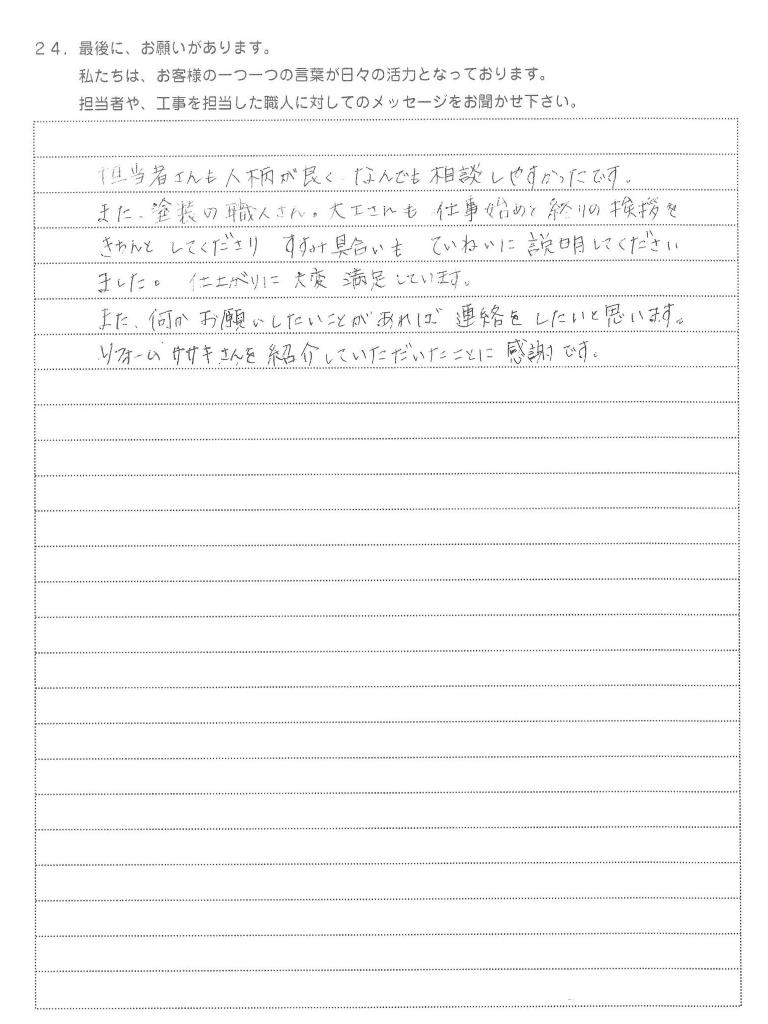 24. 最後に、お願いがあります。
私たちは、お客様の一つ一つの言葉が日々の活力となっております。
担当者や、工事を担当した職人に対してのメッセージをお聞かせ下さい。
担当者さんも人柄が良く、なんでも相談しやすかったです。
また、塗装の職人さん。大工さんも 仕事始めと終りの挨拶を
きちんと してくださり すすみ具合いも ていねいに説明してください
ました。 仕上がりに大変 満足しています。
また、何か お願いしたいことがあれば 連絡をしたいと思います。
リフォームササキさんを紹介していただいたことに感謝です。